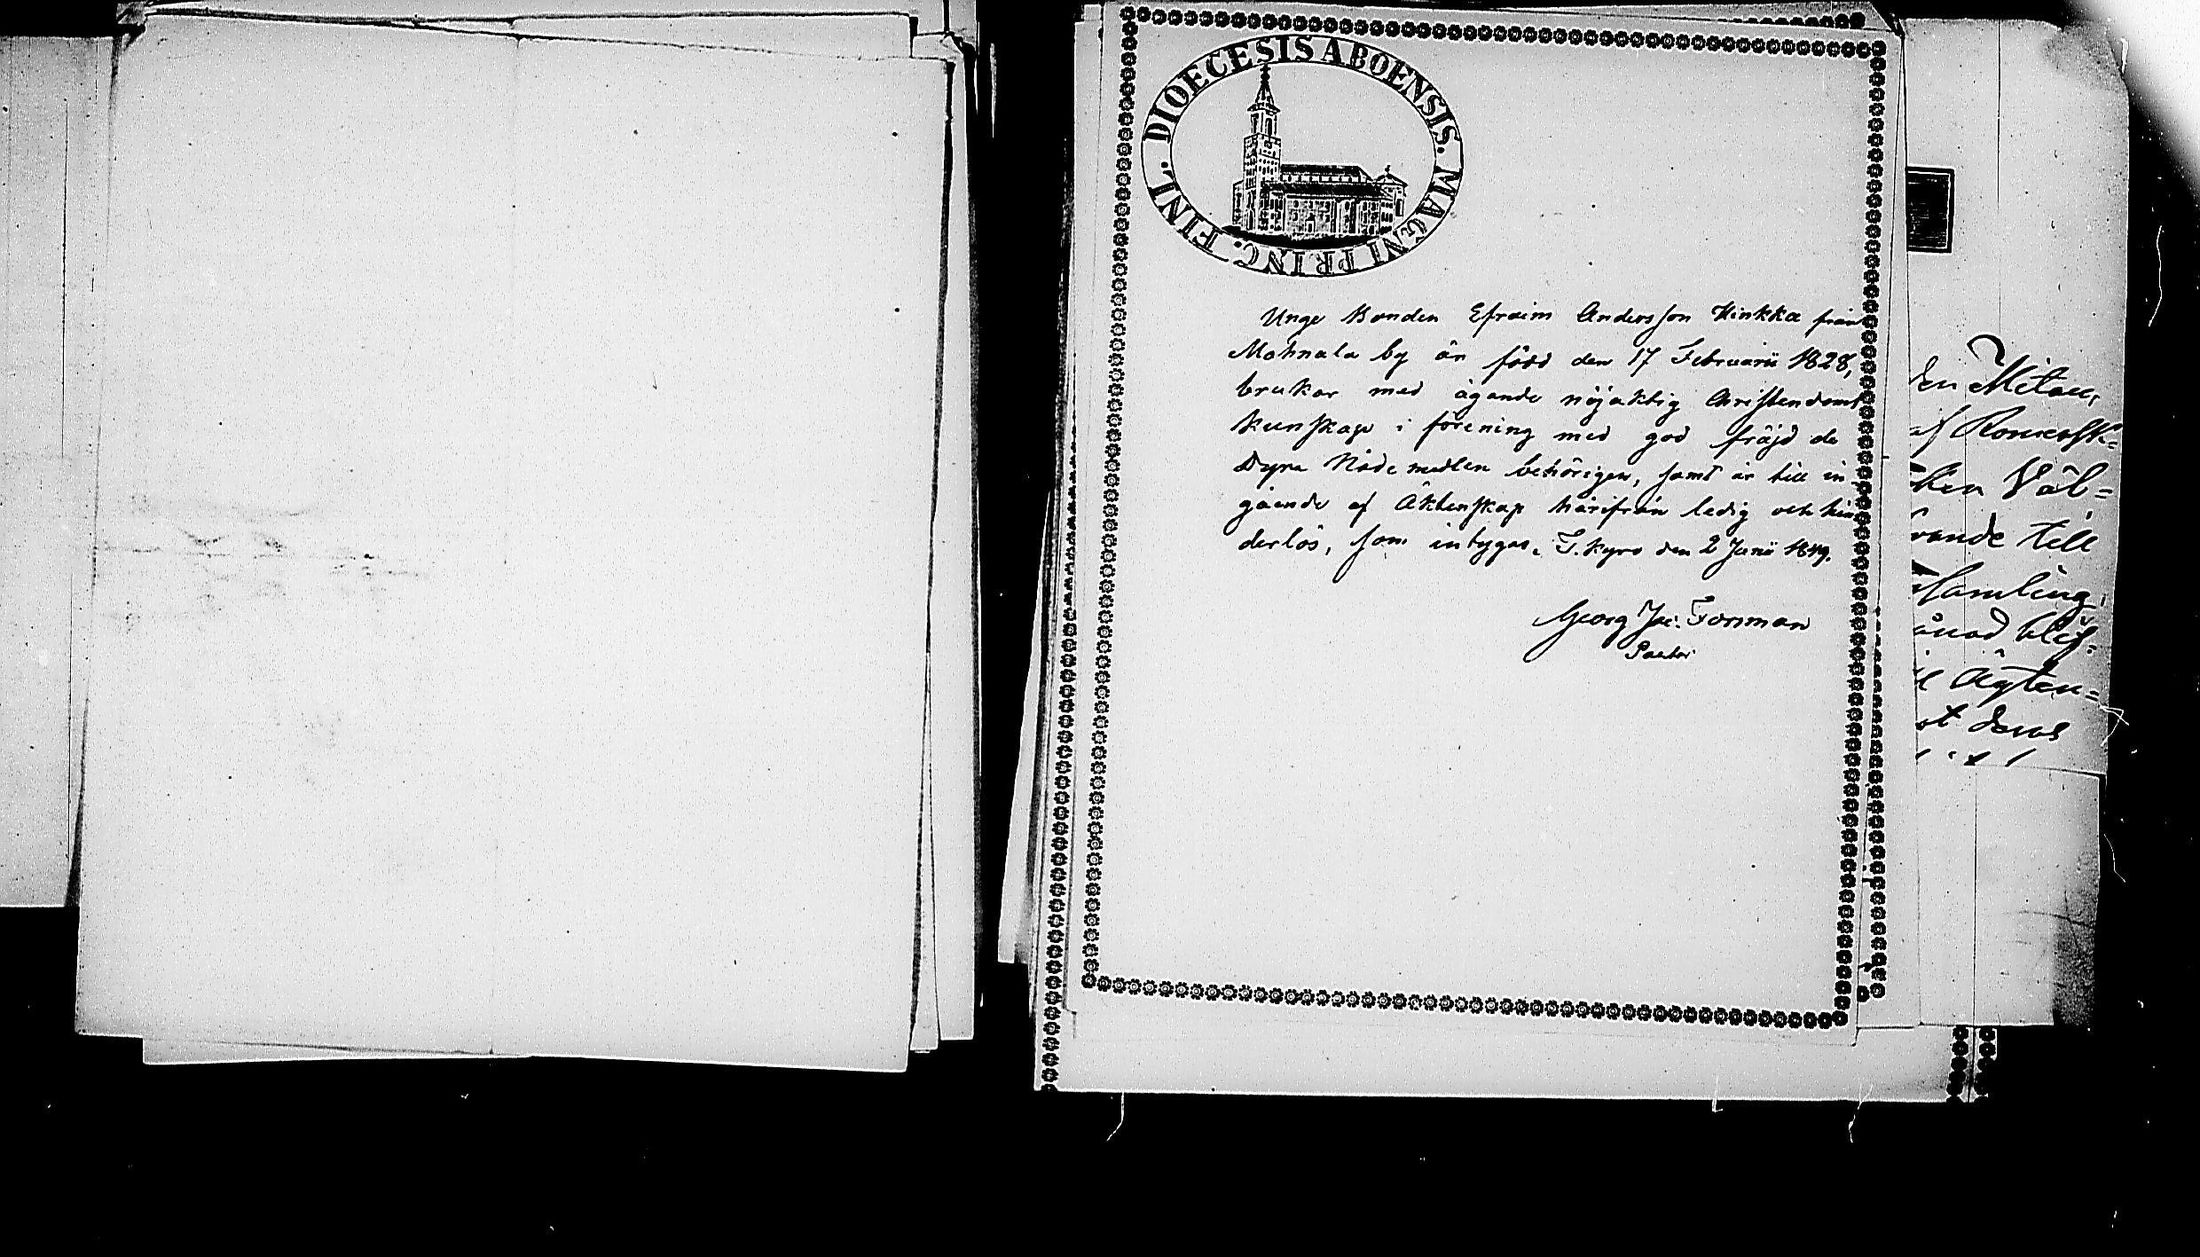 DIOECESIS ABOENSIS. MAGNI PRINC. FINL.
Unge Bonden Efraim Andersson Hinkka från
Mahnala by är född den 17 Februarii 1828,
brukar med ägande nöjaktig Christendoms
kunskap i förening med god fräjd de
Dyra Nådemedlen behörigen, samt är till in
gående af Äktenskap härifrån ledig och hin
derlös, som intygar. T. Kyro den 2 Junii 1849.
Georg Jac: Forsman
Pastor
den Mitau,
af Romersk-
ken Väl-
rande till
samling,
ånad blif-
Ägten-
st deras